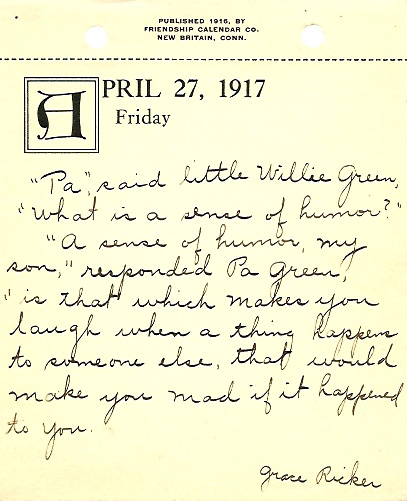 PUBLISHED 1916, BY
FRIENDSHIP CALENDAR CO.
NEW BRITAIN, CONN.
APRIL 27, 1917
Friday
"Pa", said little Willie Green,
"What is a sense of humor?"
"A sense of humor, my
son," responded Pa Green,
"is that which makes you
laugh when a thing happens
to someone else, that would
make you mad if it happened
to you.
Grace Ricker